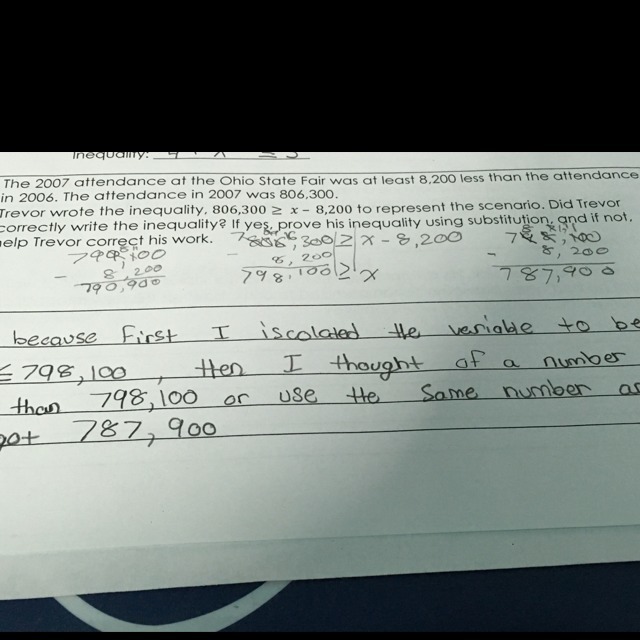 Inequality:
The 2007 attendance at the Ohio State Fair was at least 8,200 less than the attendance
in 2006. The attendance in 2007 was 806,300.
Trevor wrote the inequality, 806,300 ≥ x – 8,200 to represent the scenario. Did Trevor
correctly write the inequality? If yes, prove his inequality using substitution, and if not,
help Trevor correct his work.
806,300 ≥ x - 8,200
- 8,200
- 8,200
- 8,200
790,900
798,100 ≥ x
787,900
because first I iscolated the veriable to be
≤ 798,100, then I thought of a number
than 798,100 or use the same number
got 787,900